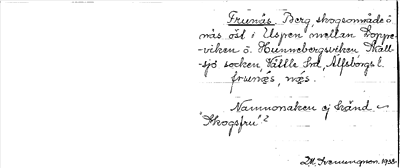 Frunäs. Berg, skogsområde o
näs öst i Uspen mellan Koppe-
viken o. Hunnebergsviken Skall-
sjö socken, Vättle hd, Älfsborgs l.
frunä́s, næs.
Namnorsaken ej känd
"Skogsfru"?
Svenungson. 1933